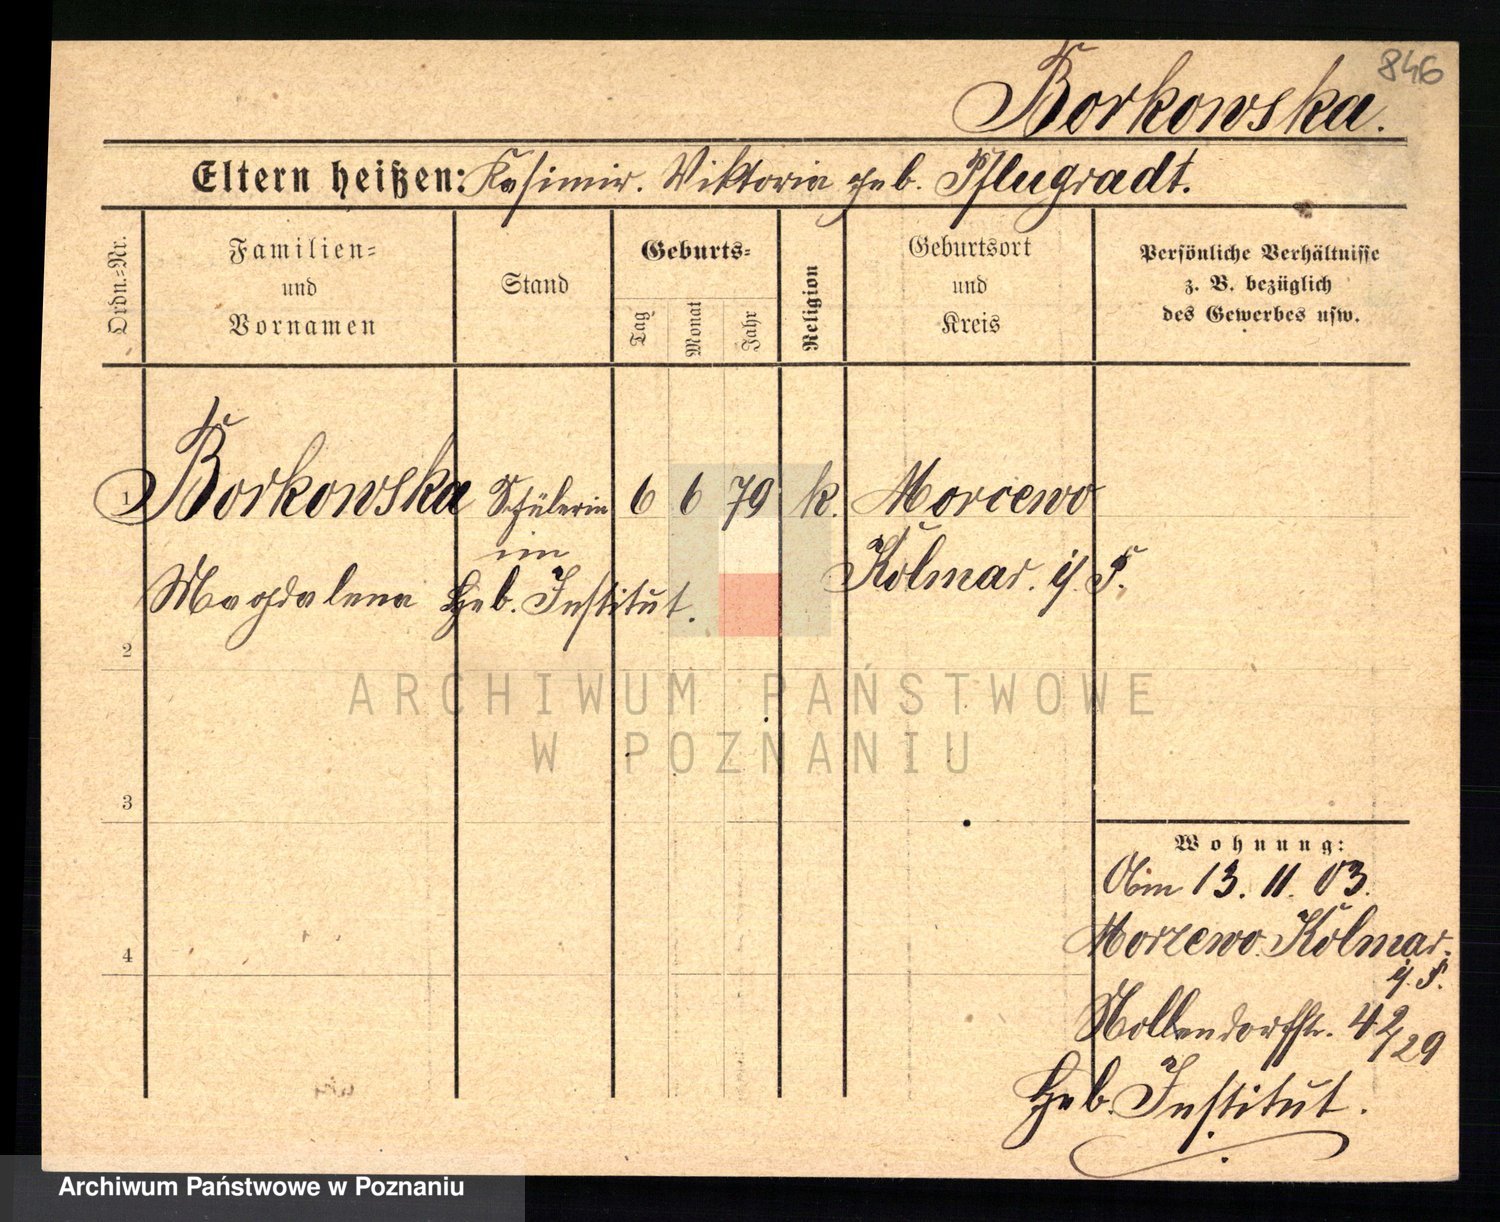 846
Borkowska.
Eltern heißen: Kasimir. Viktoria geb. Pflugradt.
Ordn.=Nr.
Familien=
und
Vornamen
Stand
Geburts=
Tag
Monat
Jahr
Religion
Geburtsort
und
Kreis
Persönliche Verhältnisse
z. B. bezüglich
des Gewerbes usw.
1 Borkowska Schülerin 6 6 79 k. Morcewo
im
Magdalena Heb. Institut. Kolmar. i/P.
2
ARCHIWUM PAŃSTWOWE
W POZNANIU
3
Wohnung:
13. 11. 03.
Morzewo Kolmar.
i/P.
4
Nollendorfstr. 42/29
Heb. Institut.
Archiwum Państwowe w Poznaniu